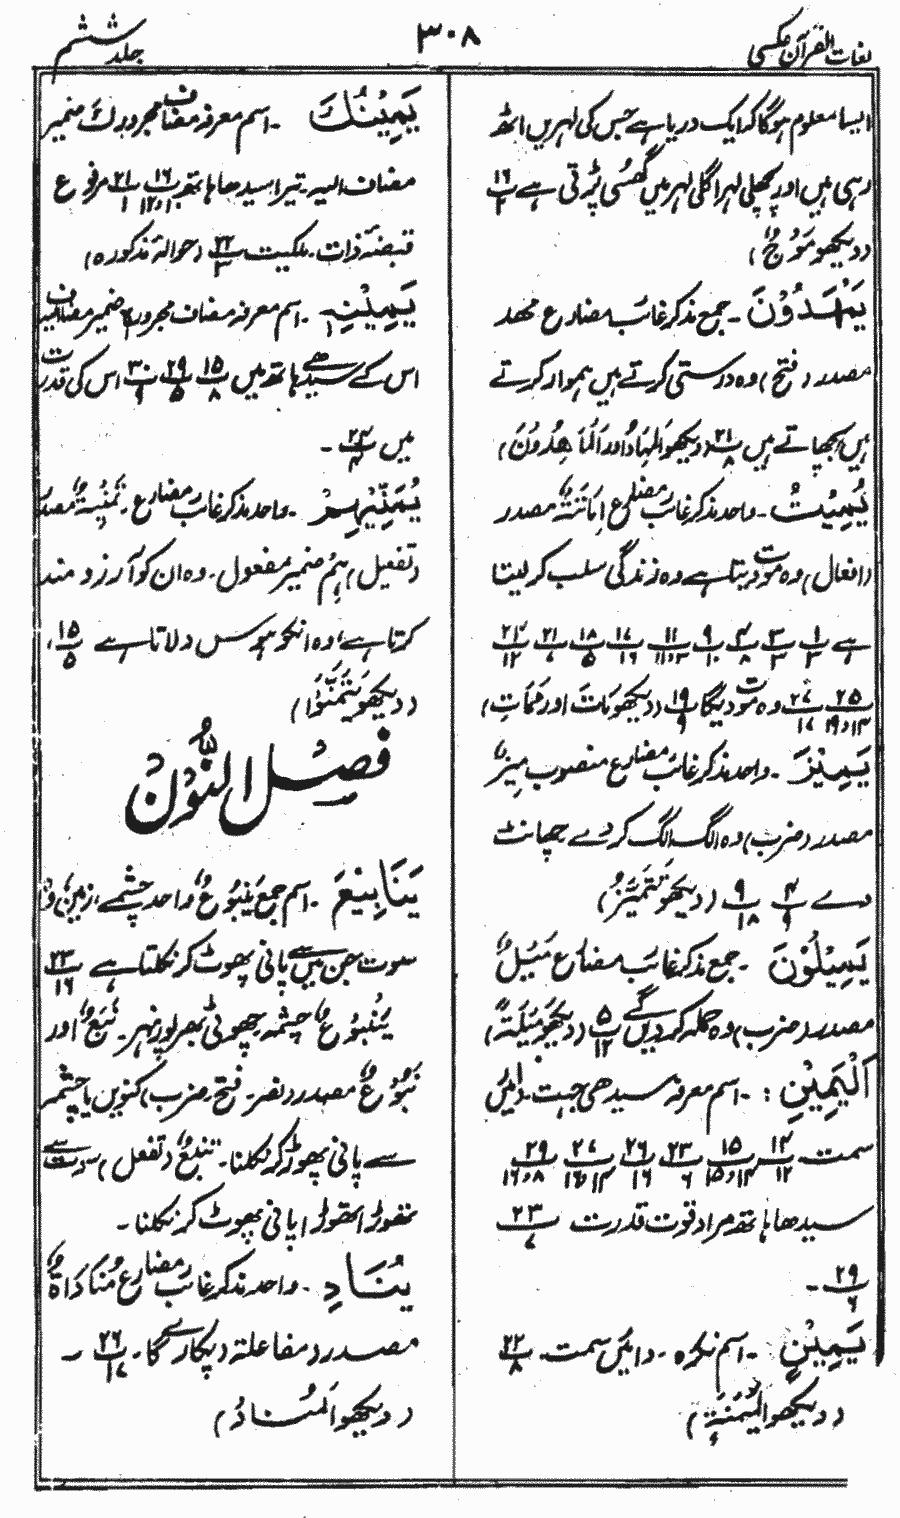 لغات القرآن عکسی
۳۰۸
جلد ششم
ایسا معلوم ہوگا کہ ایک دریا ہے جس کی لہریں اٹھ
رہی ہیں اور پچھلی لہر اگلی لہر میں گھسی پڑتی ہے ۱۶/۲
(دیکھو مَوْجٌ)
یَمْهَدُوْنَ ۔ جمع مذکر غائب مضارع مھد
مصدر (فتح) وہ درستی کرتے ہیں ہموار کرتے
ہیں بچھاتے ہیں ۲۱/۸ (دیکھو اَلْمِهَادُ اور اَلْمَاهِدُوْنَ)
یُمِیْتُ ۔ واحد مذکر غائب مضارع اِمَاتَةٌ مصدر
(افعال) وہ موت دیتا ہے وہ زندگی سلب کر لیتا
ہے ۱/۳ ۳/۲ ۴/۸ ۹/۱۰ ۱۱/۳،۱۱ ۱۷/۱۶ ۱۸/۵ ۲۱/۷ ۲۴/۱۲
۲۵/۱۴،۱۹ ۲۷/۱۷ وہ موت دیگا ۱۹/۹ (دیکھو مَاتَ اور مَمَاتِ)
یَمِیْزَ ۔ واحد مذکر غائب مضارع منصوب میزٌ
مصدر (ضرب) وہ الگ الگ کر دے چھانٹ
دے ۴/۹ ۹/۱۸ (دیکھو تَمَیَّزُ)
یَمِیْلُوْنَ ۔ جمع مذکر غائب مضارع مَیْلٌ
مصدر (ضرب) وہ حملہ کر دیں گے ۵/۱۲ (دیکھو مَیْلَةً)
اَلْیَمِیْنِ : ۔ اسم معرفہ سیدھی جہت ۔ دائیں
سمت ۔ ۱۴/۱۲ ۱۵/۱۴،۱۵ ۲۳/۶ ۲۶/۱۶ ۲۷/۱۴،۱۶ ۲۹/۸،۱۶
سیدھا ہاتھ مراد قوت قدرت ۲۳/۷
۲۹/۶ ۔
یَمِیْنِ ۔ اسم نکرہ ۔ دائیں سمت ۔ ۲۲/۸
(دیکھو الْمَیْمَنَةِ)
یَمِیْنُكَ ۔ اسم معرفہ مضاف مجرور ك ضمیر
مضاف الیہ ۔ تیرا سیدھا ہاتھ ۱۶/۱،۱۲ ۲۱/۱ مرفوع
قبضہ ذات ۔ ملکیت ۲۲/۳ (حوالہ مذکورہ)
یَمِیْنِهٖ ۔ اسم معرفہ مضاف مجرور ہ ضمیر مضاف الیہ
اس کے سیدھے ہاتھ میں ۱۵/۸ ۲۹/۵ ۳۰/۹ اس کی قدرت
میں ۲۴/۴ ۔
یُمَنِّیْهِمْ ۔ واحد مذکر غائب مضارع ۔ تَمْنِیَةٌ مصدر
(تفعیل) ہِمْ ضمیر مفعول ۔ وہ ان کو آرزو مند
کرتا ہے، وہ انکو ہوس دلاتا ہے ۱۵/۵ ،
(دیکھو یَتَمَنَّوْا)
فصل النُّوْن
یَنَابِیْعَ ۔ اسم جمع یَنْبُوْعٌ واحد چشمے، زمین کے
سوت جن میں سے پانی پھوٹ کر نکلتا ہے ۲۳/۱۶
یَنْبُوْعٌ چشمہ چھوٹی بھرپور نہر ۔ نَبْعٌ اور
نُبُوْعٌ مصدر (نصر ۔ فتح ۔ ضرب) کنویں یا چشمہ
سے پانی پھوٹ کر نکلنا ۔ تَنَبُّعٌ (تفعل) سوت سے
تھوڑا تھوڑا پانی پھوٹ کر نکلنا ۔
یُنَادِ ۔ واحد مذکر غائب مضارع مُنَادَاةٌ
مصدر (مفاعلة) پکارے گا ۔ ۲۶/۱۷ ۔
(دیکھو اَلْمُنَادُ)